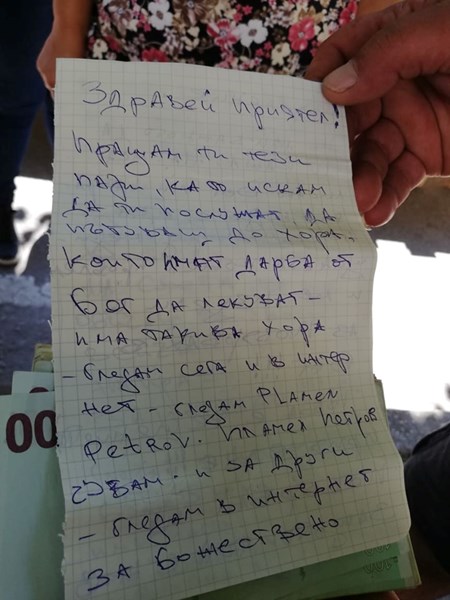 Здравей приятел!
Пращам ти тези
пари, като искам
да ти послужат да
пътуваш до хора,
които имат дарба от
Бог да лекуват -
има такива хора
- гледам сега и в интер
нет - гледам PLAMEN
PETROV. Пламен Петров
чувам и за други
- гледам в интернет
за божествено
00